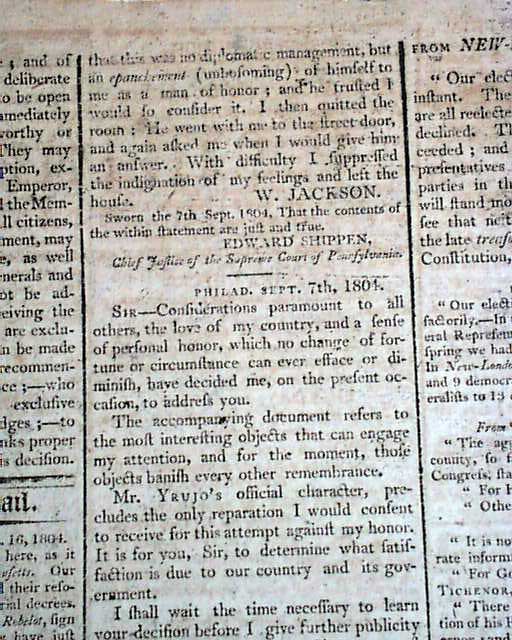 ; and of
deliberate
o be open
mmediately
worthy or
They may
ption, ex-
Emperor,
the Mem-
ll citizens,
ment, may
e, as well
enerals and
ot be ad-
ceiving the
are exclu-
n be made
recommen-
ce ;—who
exclusive
dges ;—to
nks proper
is decision.
ail.
. 16, 1804.
here, as it
Our
their reso-
rial decrees.
Rebelot, sign
have just
that this was no diplomatic management, but
an epanchement (unbosoming) of himself to
me as a man of honor ; and he trusted I
would so consider it. I then quitted the
room : He went with me to the street door,
and again asked me when I would give him
an answer. With difficulty I suppressed
the indignation of my feelings and left the
house. W. JACKSON.
Sworn the 7th Sept. 1804, That the contents of
the within statement are just and true.
EDWARD SHIPPEN,
Chief Justice of the Supreme Court of Pennsylvania.
PHILAD. SEPT. 7th, 1804.
SIR—Considerations paramount to all
others, the love of my country, and a sense
of personal honor, which no change of for-
tune or circumstance can ever efface or di-
minish, have decided me, on the present oc-
casion, to address you.
The accompanying document refers to
the most interesting objects that can engage
my attention, and for the moment, those
objects banish every other remembrance.
Mr. YRUJO's official character, pre-
cludes the only reparation I would consent
to receive for this attempt against my honor.
It is for you, Sir, to determine what satis-
faction is due to our country and its gov-
ernment.
I shall wait the time necessary to learn
your decision before I give further publicity
FROM NEW-
" Our elect
instant. The
are all reelected
declined. Th
ceeded ; and
presentatives
parties in th
will stand mo
see that neit
the late treaso
Constitution,
" Our electi
factorily.—In
eral Represen
spring we had
In New-London
and 9 democr
eralists to 13
From
" The ag
county, so f
Congress, sta
" For H
" Othe
" It is no
rate inform
" For Go
TICHENOR,
" There
tion of his